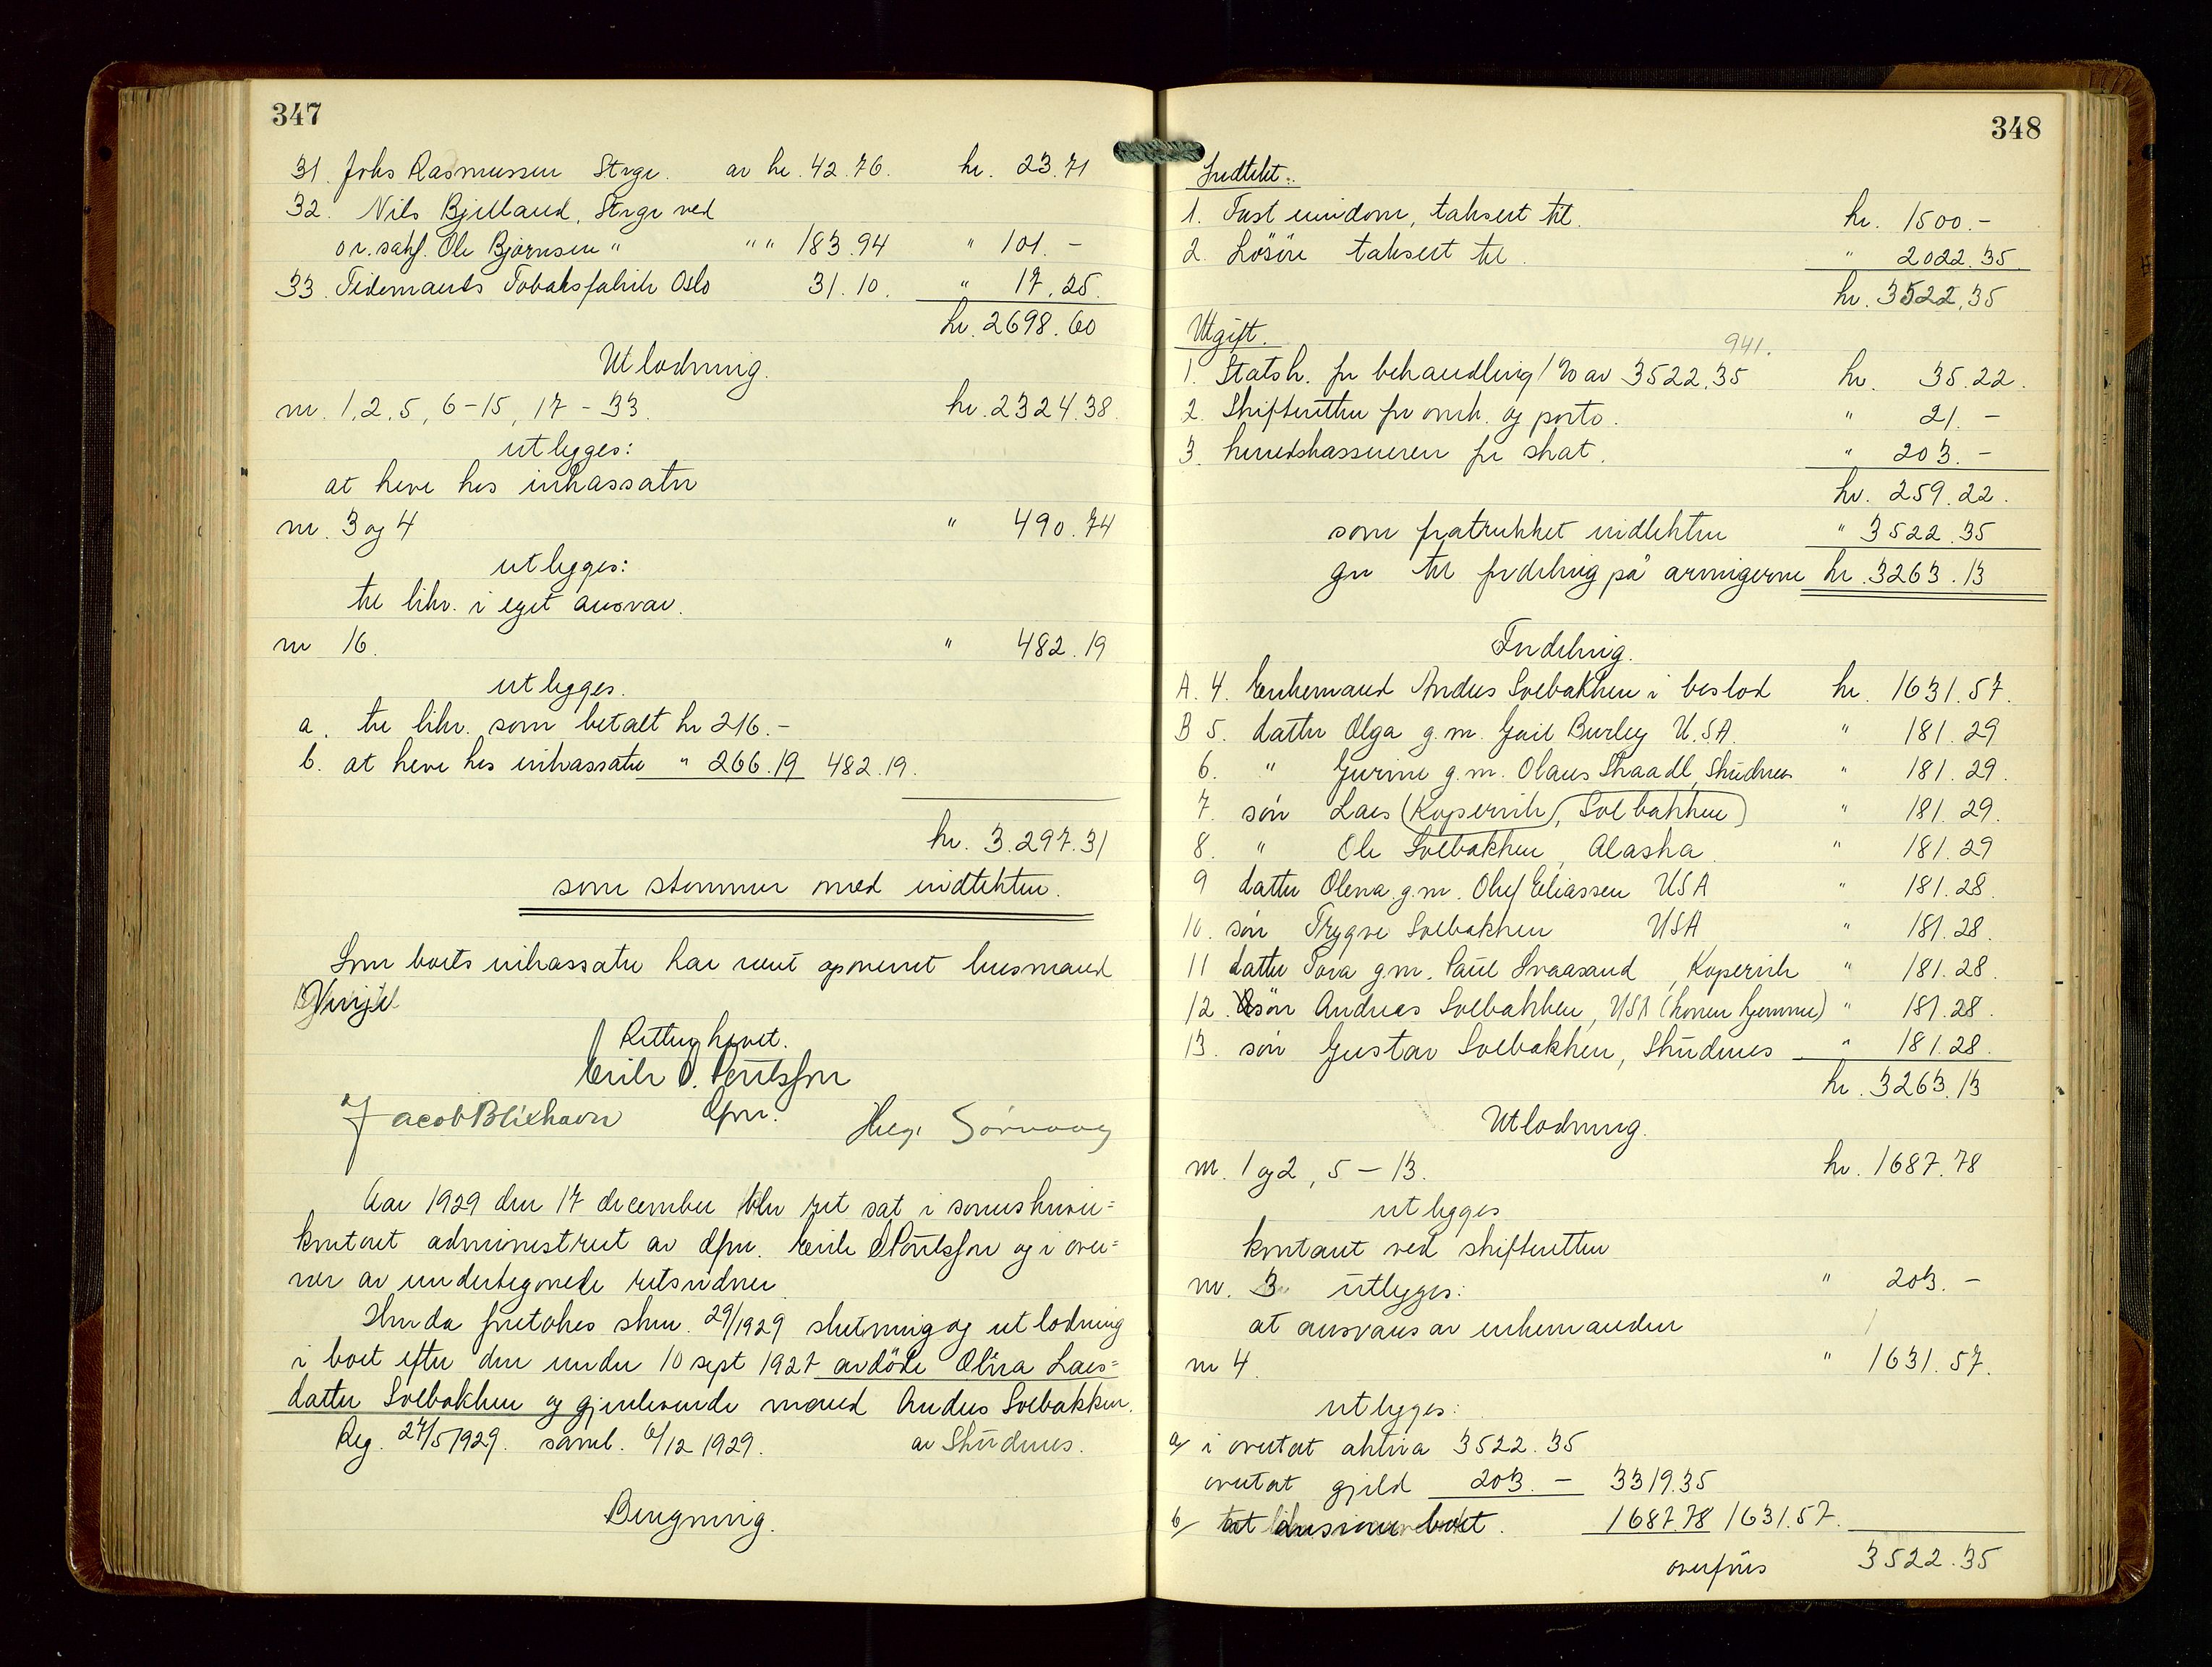 347
31. Johs Rasmussen Stvgr. av kr. 42.76. kr. 23.71
32. Nils Bjelland, Stvgr ved
o.r.sakf. Ole Bjørnsen " " " 183.94 " 101.-
33. Tidemands Tobaksfabrik Oslo 31.10. " 17.25.
kr. 2698.60
Utlodning.
nr. 1, 2, 5, 6-15, 17-33. kr. 2324.38.
utlegges:
at heve hos inkassator
nr. 3 og 4 " 490.74
utlegges:
til likv. i eget ansvar.
nr 16. " 482.19
utlegges.
a. til likv. som betalt kr 216.-
b. at heve hos inkassator " 266.19 482.19.
kr. 3.297.31
som stemmer med indtekten.
Som boets inkassator har været opnevnt lensmand
Vinje
Retten hevet.
Eirik O. Poulsson
dfm.
Jacob Blikhavn Helge Sørvaag
Aar 1929 den 17 december blev ret sat i sorenskriver=
kontoret administrert av dfm. Eirik O Poulsson og i over=
vær av undertegnede retsvidner.
Hvor da foretokes skm. 29/1929 slutning og utlodning
i boet efter den under 10 sept 1927 avdöde Olina Lars=
datter Solbakken og gjenlevende mand Andres Solbakken.
Reg. 27/5 1929. saml. 6/12 1929. av Skudnes.
Beregning.
348
Indtekt:
1. Fast eiendom, taksert til. kr. 1500.-
2. Lösöre taksert til. " 2022.35.
kr. 3522,35
Utgift.
941.
1. Statsk. for behandling 1% av 3522,35 kr. 35.22.
2. Skifteretten for omk. og porto. " 21.-
3. herredskassereren for skat. " 203.-
kr. 259.22.
som fratrukket indtekten " 3522.35
gir til fordeling på arvingerne kr. 3263.13
Fordeling.
A. 4. Enkemand Andres Solbakken i boslod kr. 1631.57.
B 5. datter Olga g.m. Gail Burley U.S.A. " 181.29
6. " Gurine g.m. Olaus Skaadl, Skudnes " 181.29.
7. sön Lars (Kopervik, Solbakken) " 181.29.
8. " Ole Solbakken, Alaska. " 181.29
9 datter Olena g.m. Oluf Eliassen USA " 181.28.
10. sön Trygve Solbakken USA " 181.28.
11 datter Tora g.m. Paul Svaasand, Kopervik " 181.28.
12. sön Andreas Solbakken, USA (konen hjemme) " 181.28.
13. sön Gustav Solbakken, Skudnes " 181.28.
kr. 3263.13
Utlodning.
nr. 1 og 2, 5-13. kr. 1687.78
utlegges
kontant ved skifteretten
nr. 3 utlegges: " 203.-
at ansvares av enkemanden
nr 4. " 1631.57.
utlegges:
a/ i overtat aktiva 3522.35
overtat gjeld 203.- 3319.35
b/ boet. 1687.78 1631.57.
overføres 3522.35